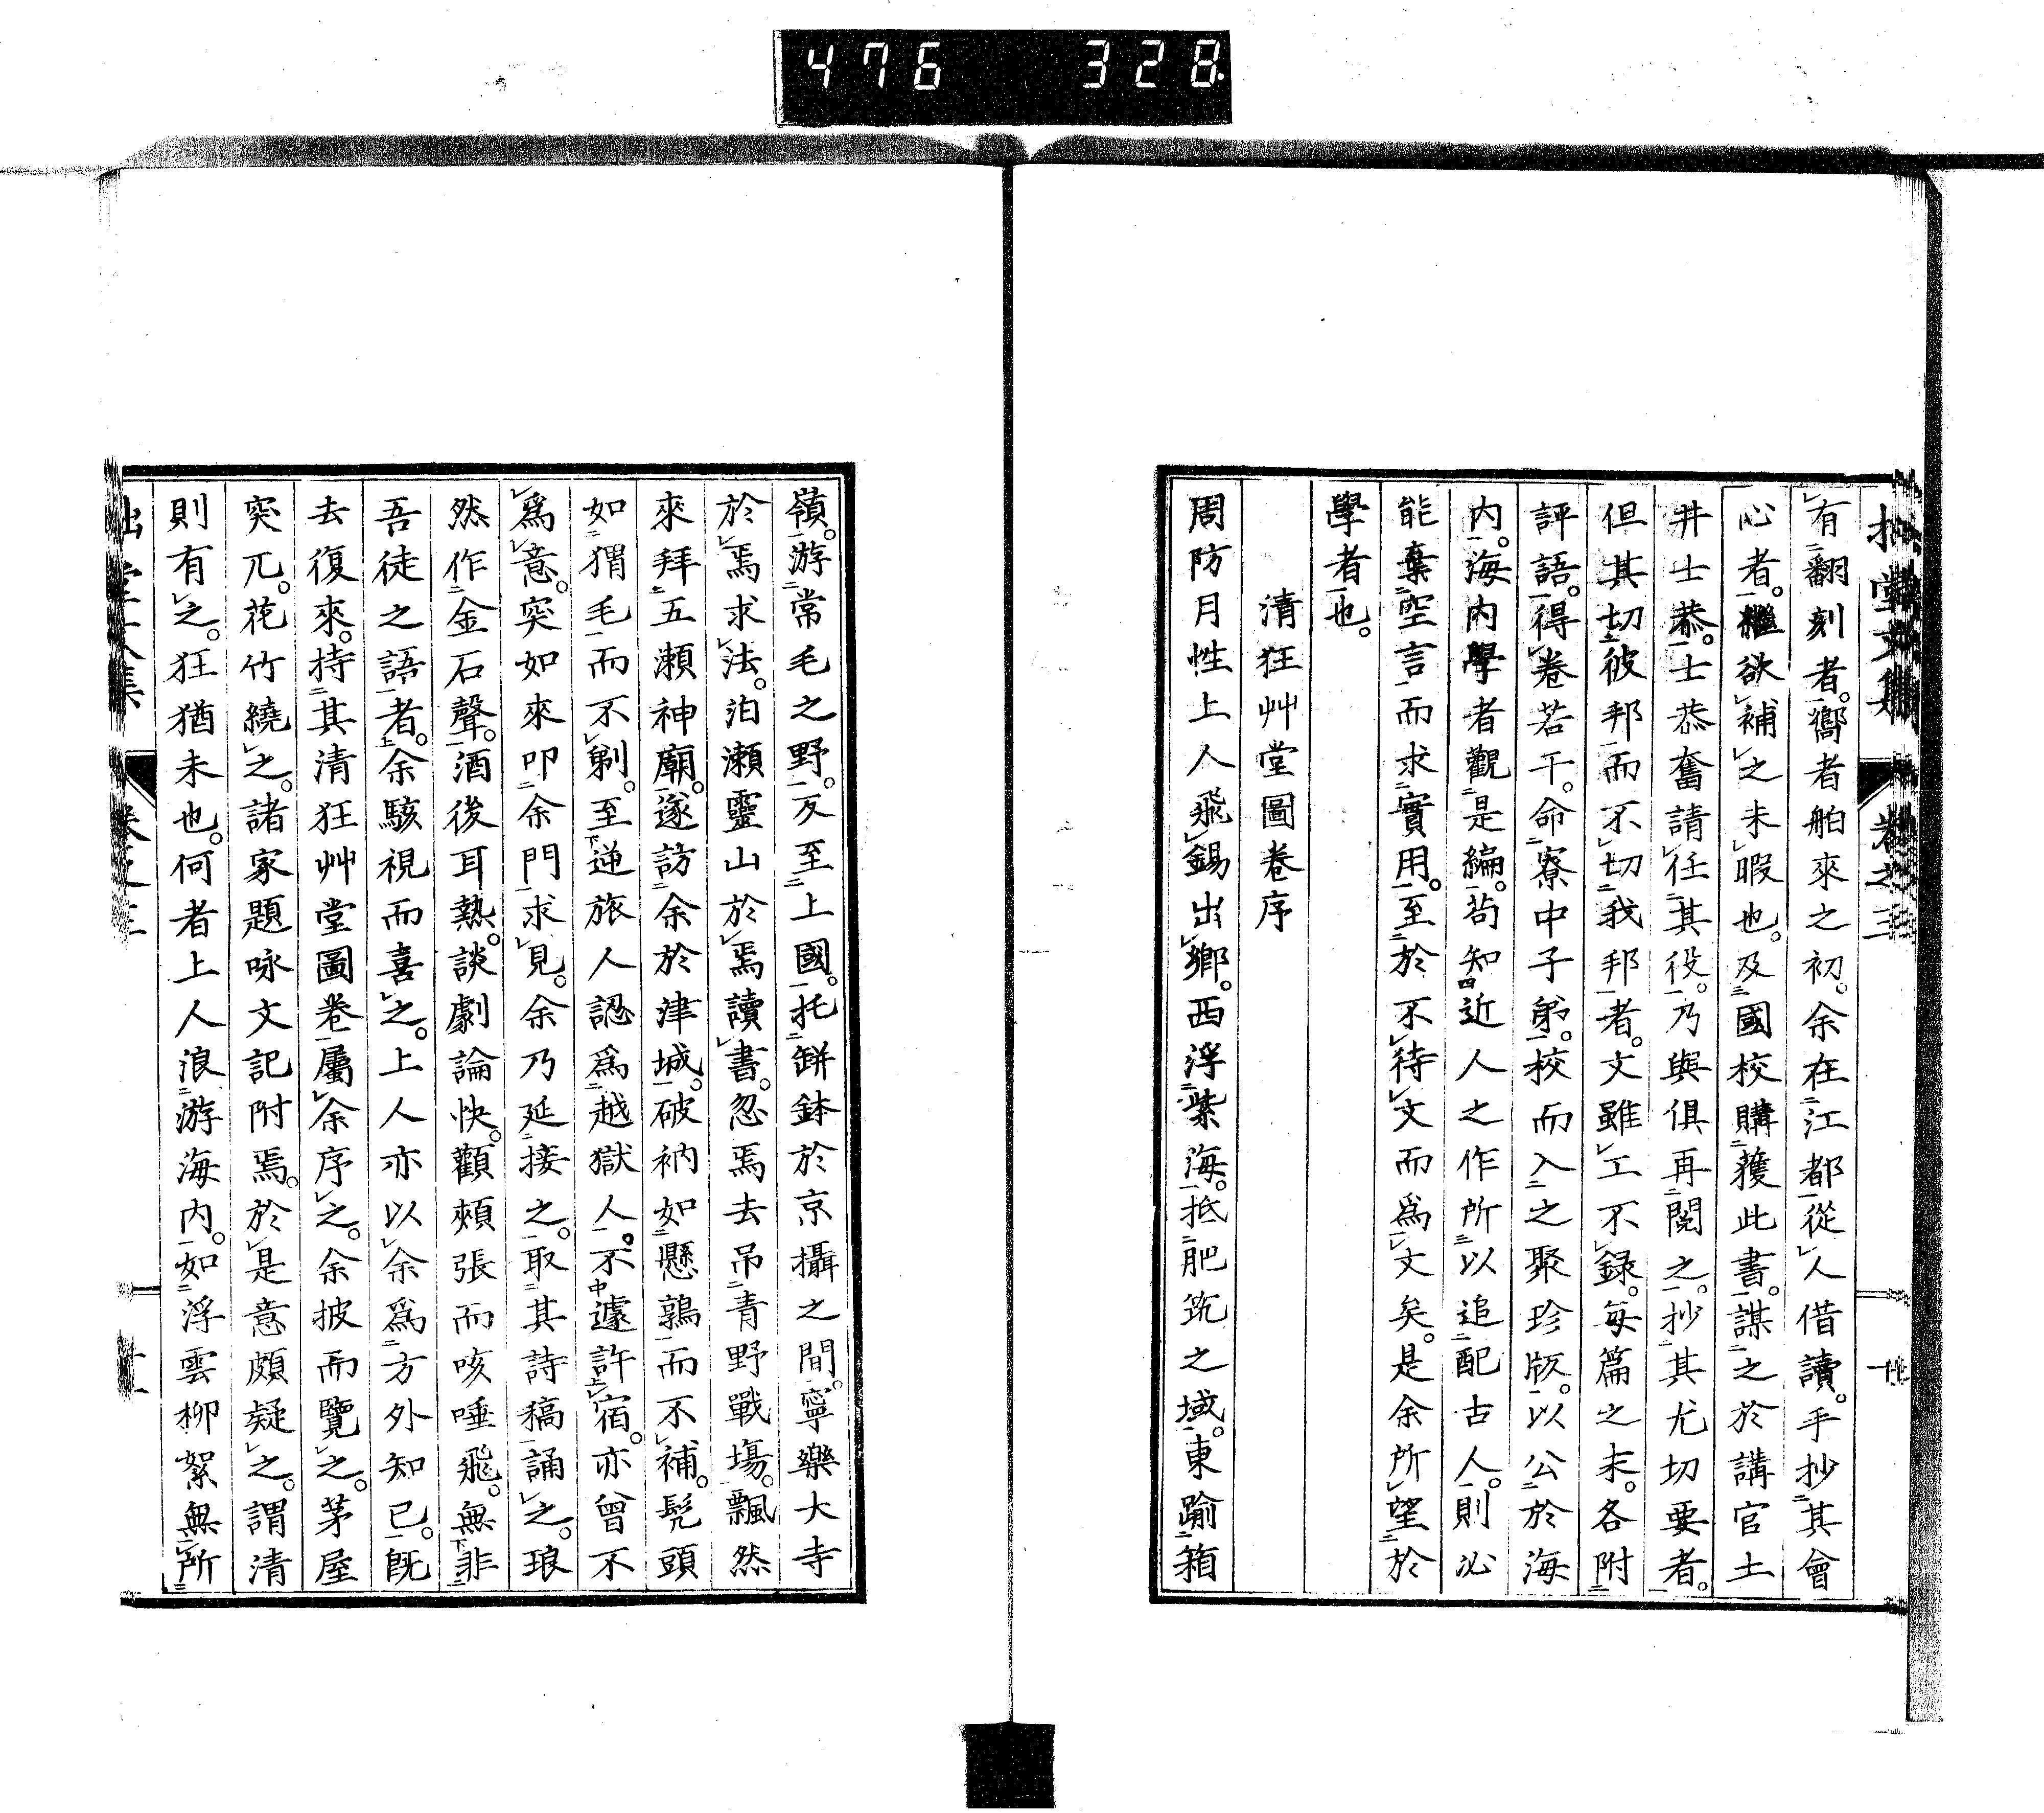 476 328
拙堂文集 卷之三
有翻刻者。嚮者舶來之初。余在江都從人借讀。手抄其會
心者。繼欲補之未暇也。及國校購獲此書。謀之於講官土
井士恭。士恭奮請任其役。乃與俱再閱之。抄其尤切要者。
但其切彼邦而不切我邦者。文雖工不録。每篇之末。各附
評語。得卷若干。命寮中子弟。校而入之聚珍版。以公於海
内。海内學者觀是編。茍知近人之作所以追配古人。則必
能棄空言而求實用。至於不待文而爲文矣。是余所望於
學者也。
清狂艸堂圖卷序
周防月性上人飛錫出鄉。西浮紫海。抵肥筑之域。東踰箱
嶺。游常毛之野。反至上國。托缾鉢於京攝之間。寧樂大寺
於焉求法。泊瀨靈山於焉讀書。忽焉去吊青野戰塲。飄然
來拜五瀬神廟。遂訪余於津城。破衲如懸鶉而不補。髡頭
如猬毛而不剃。至逆旅人認爲越獄人。不遽許宿。亦曾不
爲意。突如來叩余門求見。余乃延接之。取其詩稿誦之。琅
然作金石聲。酒後耳熱。談劇論快。顴頰張而咳唾飛。無非
吾徒之語者。余駭視而喜之。上人亦以余爲方外知已。旣
去復來。持其清狂艸堂圖卷屬余序之。余披而覽之。茅屋
突兀。花竹繞之。諸家題咏文記附焉。於是意頗疑之。謂清
則有之。狂猶未也。何者上人浪游海内。如浮雲柳絮無所